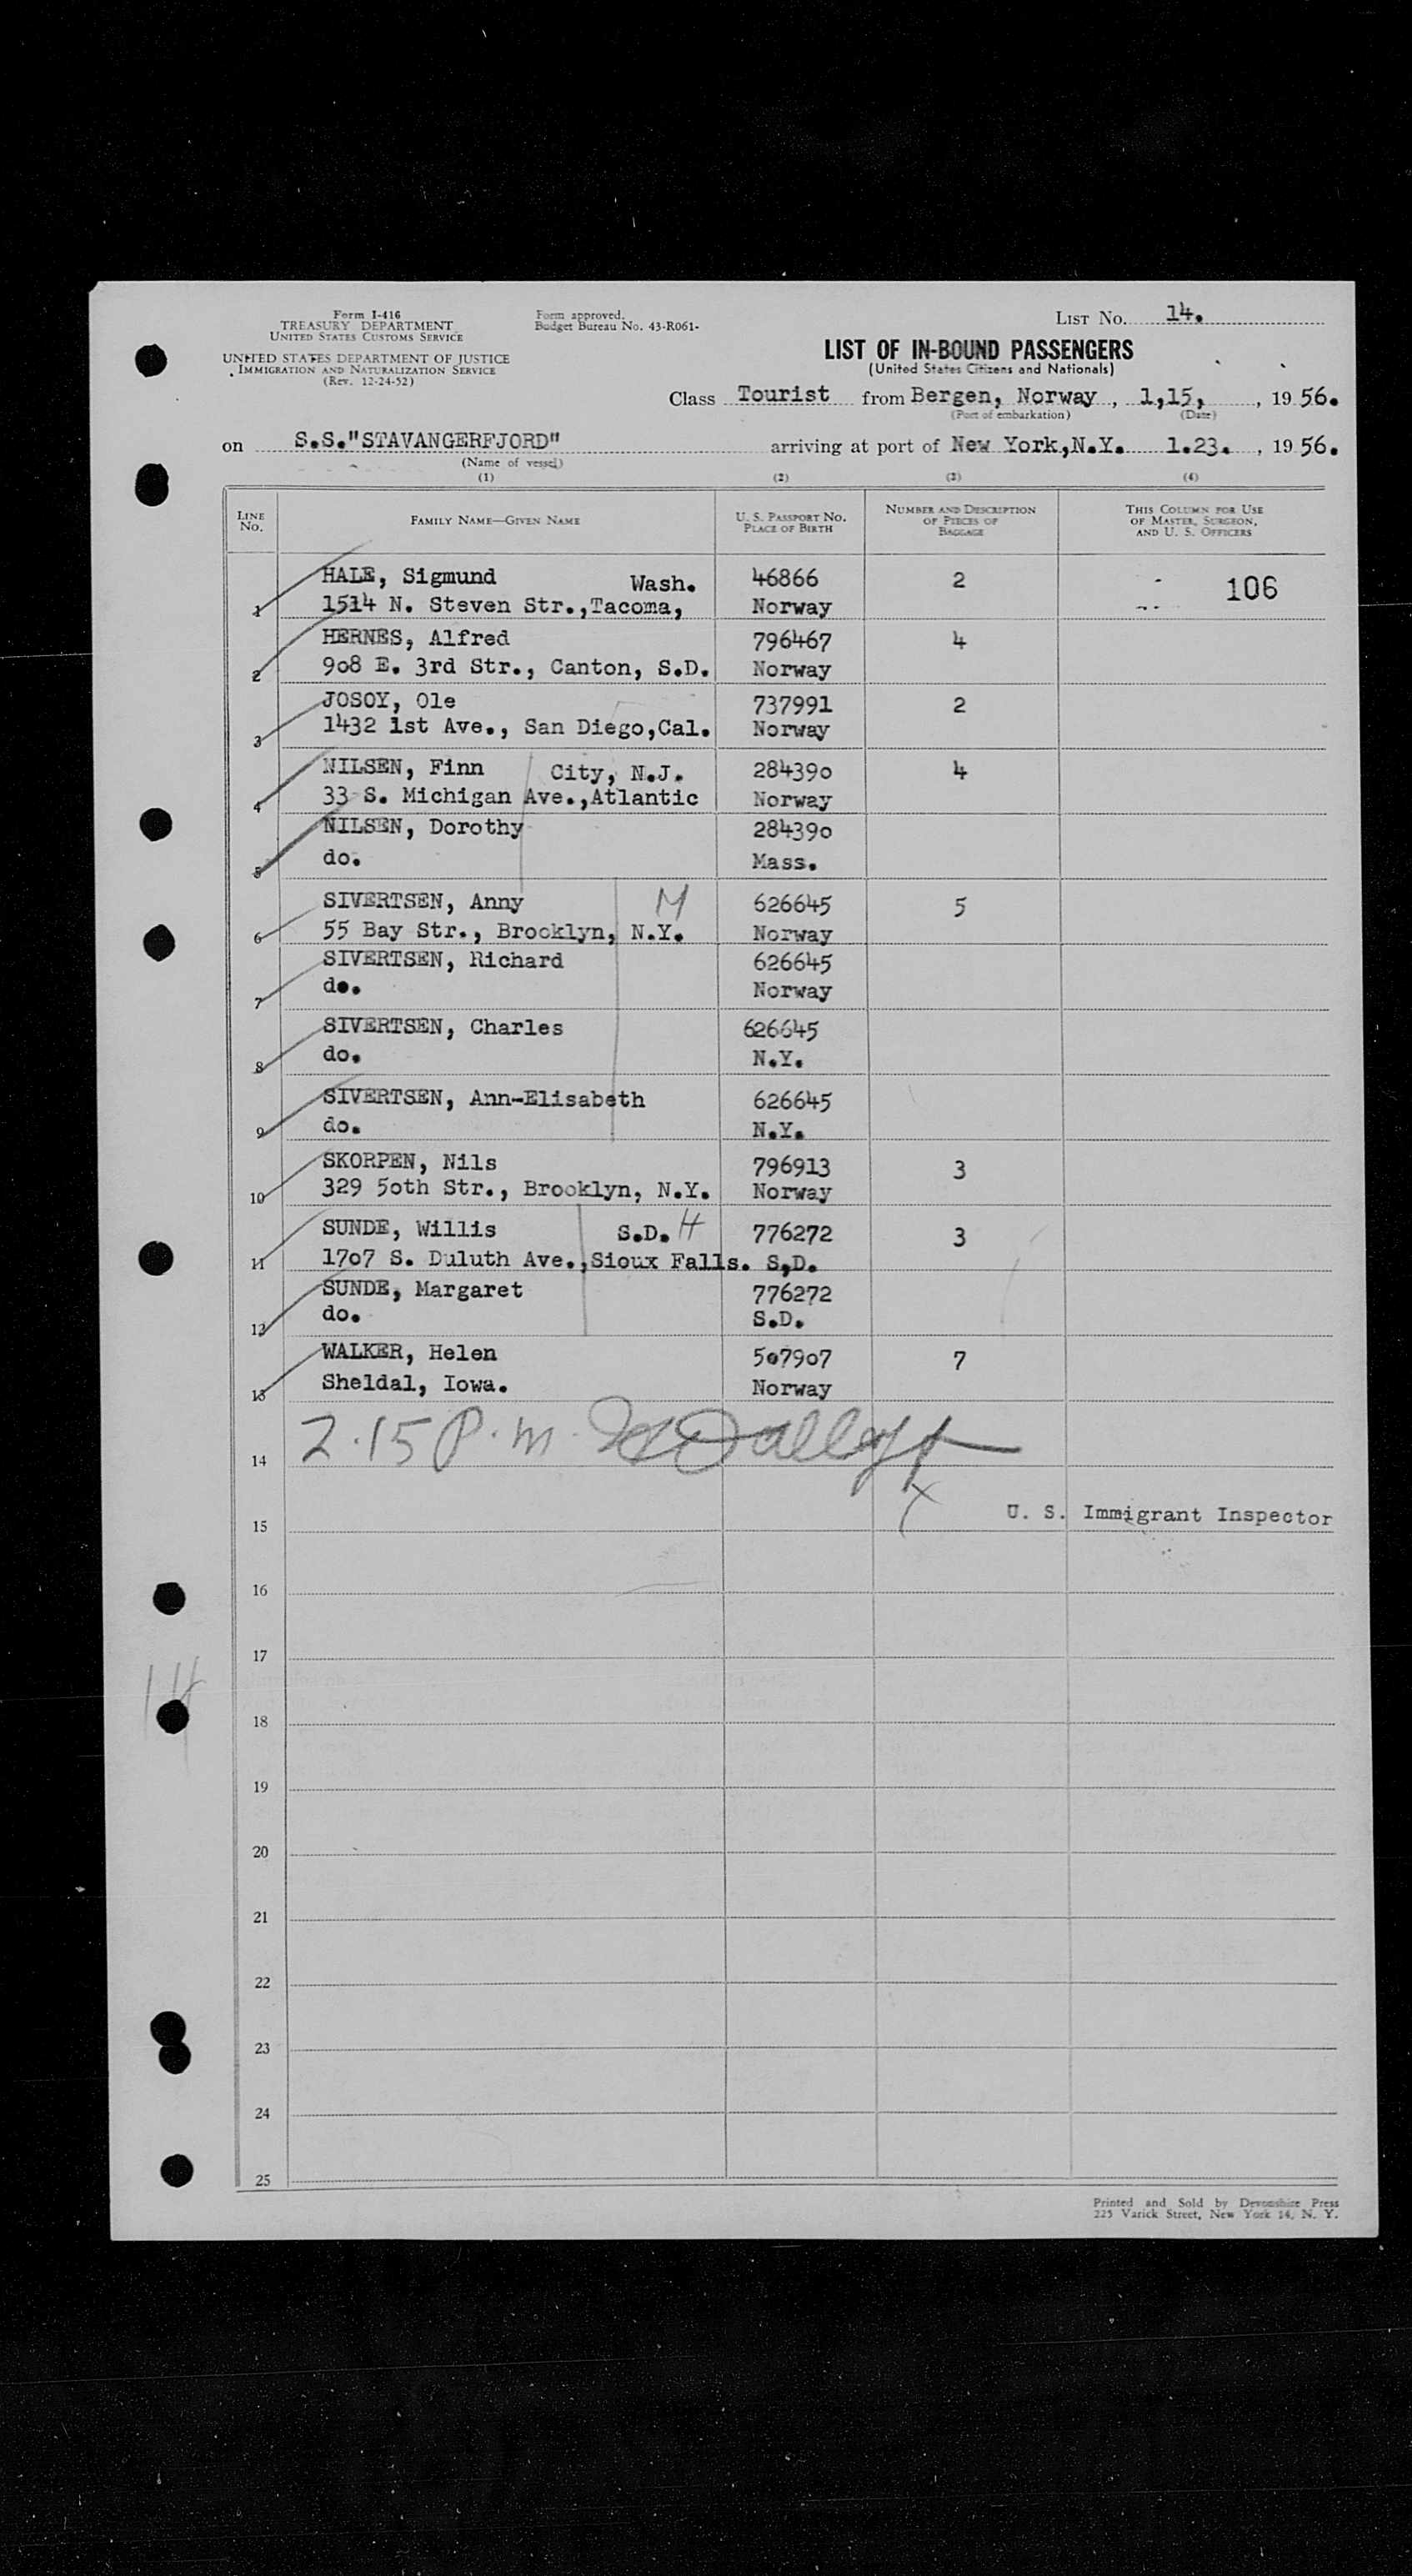 Form I-416
TREASURY DEPARTMENT
UNITED STATES CUSTOMS SERVICE
UNITED STATES DEPARTMENT OF JUSTICE
IMMIGRATION AND NATURALIZATION SERVICE
(Rev. 12-24-52)
Form approved.
Budget Bureau No. 43-R061-
LIST No. 14.
LIST OF IN-BOUND PASSENGERS
(United States Citizens and Nationals)
Class Tourist from Bergen, Norway, 1,15, , 1956.
(Port of embarkation) (Date)
on S.S."STAVANGERFJORD" arriving at port of New York,N.Y. 1.23. , 1956.
(Name of vessel)
(1) (2) (3) (4)
LINE No. FAMILY NAME—GIVEN NAME U. S. PASSPORT NO. PLACE OF BIRTH NUMBER AND DESCRIPTION OF PIECES OF BAGGAGE THIS COLUMN FOR USE OF MASTER, SURGEON, AND U. S. OFFICERS
HALE, Sigmund Wash. 46866 2 106
1 1514 N. Steven Str.,Tacoma, Norway
HERNES, Alfred 796467 4
2 908 E. 3rd Str., Canton, S.D. Norway
JOSOY, Ole 737991 2
3 1432 1st Ave., San Diego,Cal. Norway
NILSEN, Finn City, N.J. 284390 4
4 33 S. Michigan Ave.,Atlantic Norway
NILSEN, Dorothy 284390
5 do. Mass.
SIVERTSEN, Anny M 626645 5
6 55 Bay Str., Brooklyn, N.Y. Norway
SIVERTSEN, Richard 626645
7 do. Norway
SIVERTSEN, Charles 626645
8 do. N.Y.
SIVERTSEN, Ann-Elisabeth 626645
9 do. N.Y.
SKORPEN, Nils 796913 3
10 329 50th Str., Brooklyn, N.Y. Norway
SUNDE, Willis S.D. H 776272 3
11 1707 S. Duluth Ave.,Sioux Falls. S,D.
SUNDE, Margaret 776272
12 do. S.D.
WALKER, Helen 507907 7
13 Sheldal, Iowa. Norway
2.15 P.m.
14
U. S. Immigrant Inspector
15
16
17
14
18
19
20
21
22
23
24
25
Printed and Sold by Devonshire Press
225 Varick Street, New York 14, N. Y.